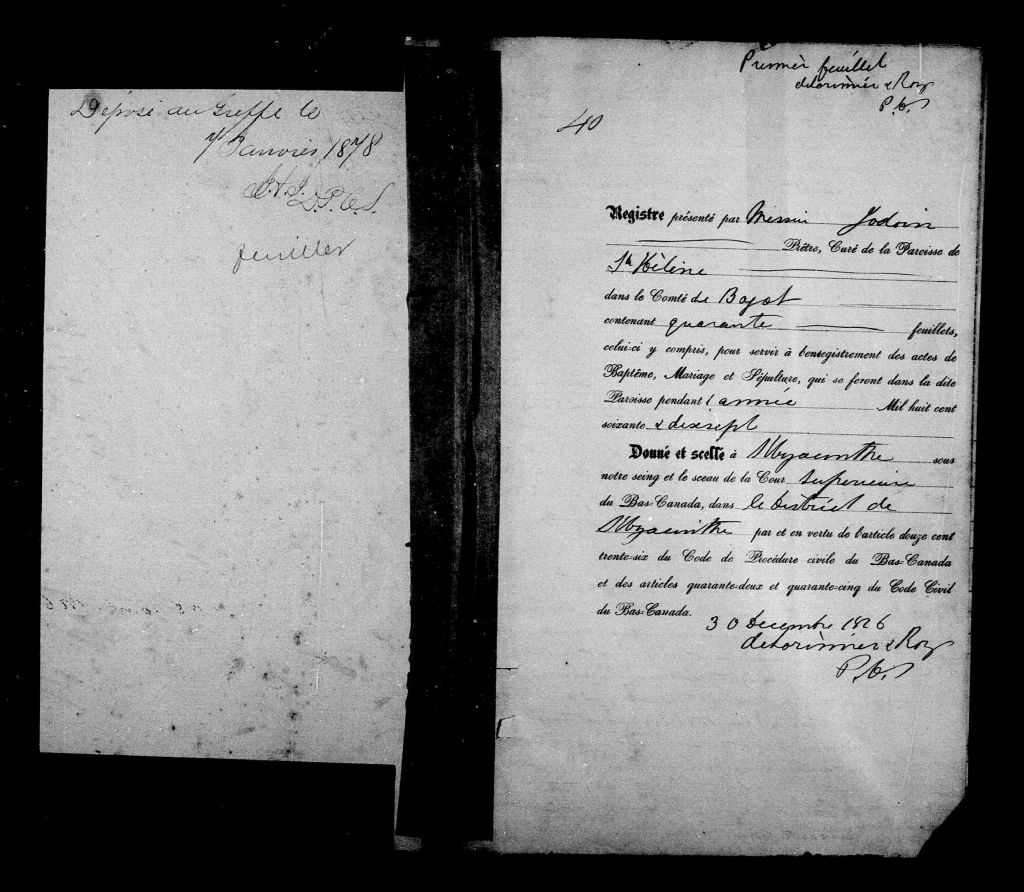 Déposé au Greffe le
7 Janvier 1878
D.P.C.S.
feuillet
Premier feuillet
delorimier & Roy
P.C.S
40
Registre présenté par Messire Jodoin
Prêtre, Curé de la Paroisse de
Ste Hélène
dans le Comté de Bagot
contenant quarante feuillets,
celui-ci y compris, pour servir à l'enregistrement des actes de
Baptême, Mariage et Sépulture, qui se feront dans la dite
Paroisse pendant l'année Mil huit cent
soixante & dixsept
Donné et scellé à St Hyacinthe sous
notre seing et le sceau de la Cour Superieure
du Bas-Canada, dans le District de
St Hyacinthe par et en vertu de l'article douze cent
trente-six du Code de Procédure civile du Bas-Canada
et des articles quarante-deux et quarante-cinq du Code Civil
du Bas-Canada.
30 Decembre 1876
delorimier & Roy
P.C.S